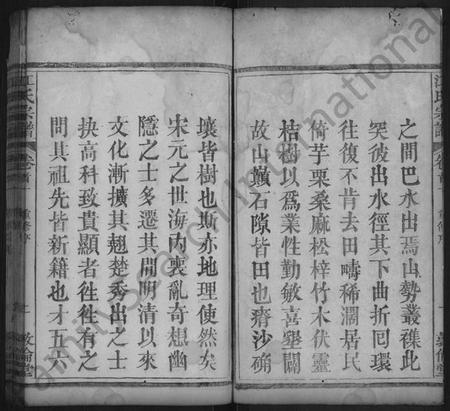 之間巴水出焉山勢叢襍此
突彼出水徑其下曲折囘環
往復不肯去田疇稀濶居民
倚芋栗桑麻松梓竹水伏靈
桔樹以為業性勤敏喜墾闢
故山巔石隙皆田也瘠沙确
壤皆樹也斯亦地理使然矣
宋元之世海内喪亂奇想幽
隱之士多遷其間明清以來
文化漸擴其翹楚秀出之士
抉高科致貴顯者徃徃有之
問其祖先皆新籍也才五六
江氏宗譜
卷首
重修序
敦倫堂
FamilySearch International